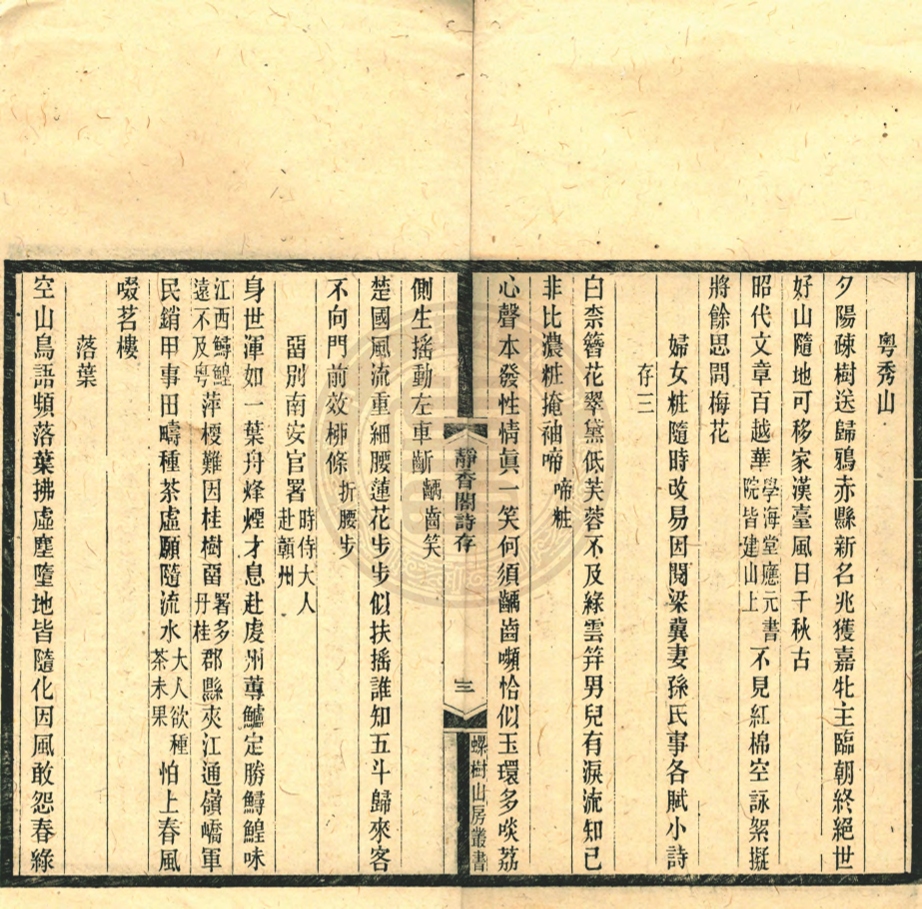 粵秀山
夕陽疎樹送歸鴉赤縣新名兆獲嘉牝主臨朝終絕世
好山隨地可移家漢臺風日千秋古
昭代文章百越華學海堂應元書院皆建山上不見紅棉空詠絮擬
將餘思問梅花
婦女粧隨時改易因閱梁冀妻孫氏事各賦小詩
存三
白柰簪花翠黛低芙蓉不及綠雲笄男兒有淚流知己
非比濃粧掩袖啼啼粧
心聲本發性情眞一笑何須齲齒嚬恰似玉環多啖荔
側生搖動左車齗齲齒笑
楚國風流重細腰蓮花步步似扶搖誰知五斗歸來客
不向門前效柳條折腰步
畱別南安官署時侍大人赴贛州
身世渾如一葉舟烽煙才息赴虔州蓴鱸定勝鱘鰉味
江西鱘鰉遠不及粵萍櫻難因桂樹畱署多丹桂郡縣夾江通嶺嶠軍
民銷甲事田疇種茶虛願隨流水大人欲種茶未果怕上春風
啜茗樓
落葉
空山鳥語頻落葉拂虛塵墮地皆隨化因風敢怨春綠
靜香閣詩存
三
螺樹山房叢書